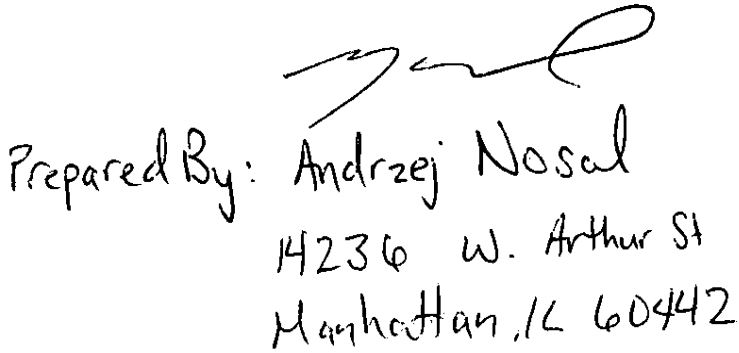 Prepared By: Andrzej Nosal
14236 W. Arthur St
Manhattan, IL 60442